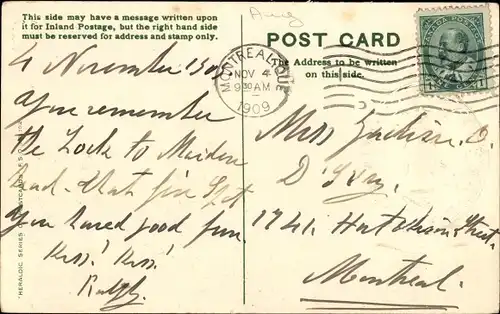 This side may have a message written upon
it for Inland Postage, but the right hand side
must be reserved for address and stamp only.
4 November 1909
You remember
the Locks to Maiden
Lead – that fine Spot
You loved good fun.
Kiss! Kiss!
Ralph
POST CARD
The Address to be written
on this side.
MONTREAL, QUE.
NOV 4
9 30 AM
1909
CANADA POSTAGE
1 1
Miss
O.
D'Ivry.
1741 Hutchison Street.
Montreal